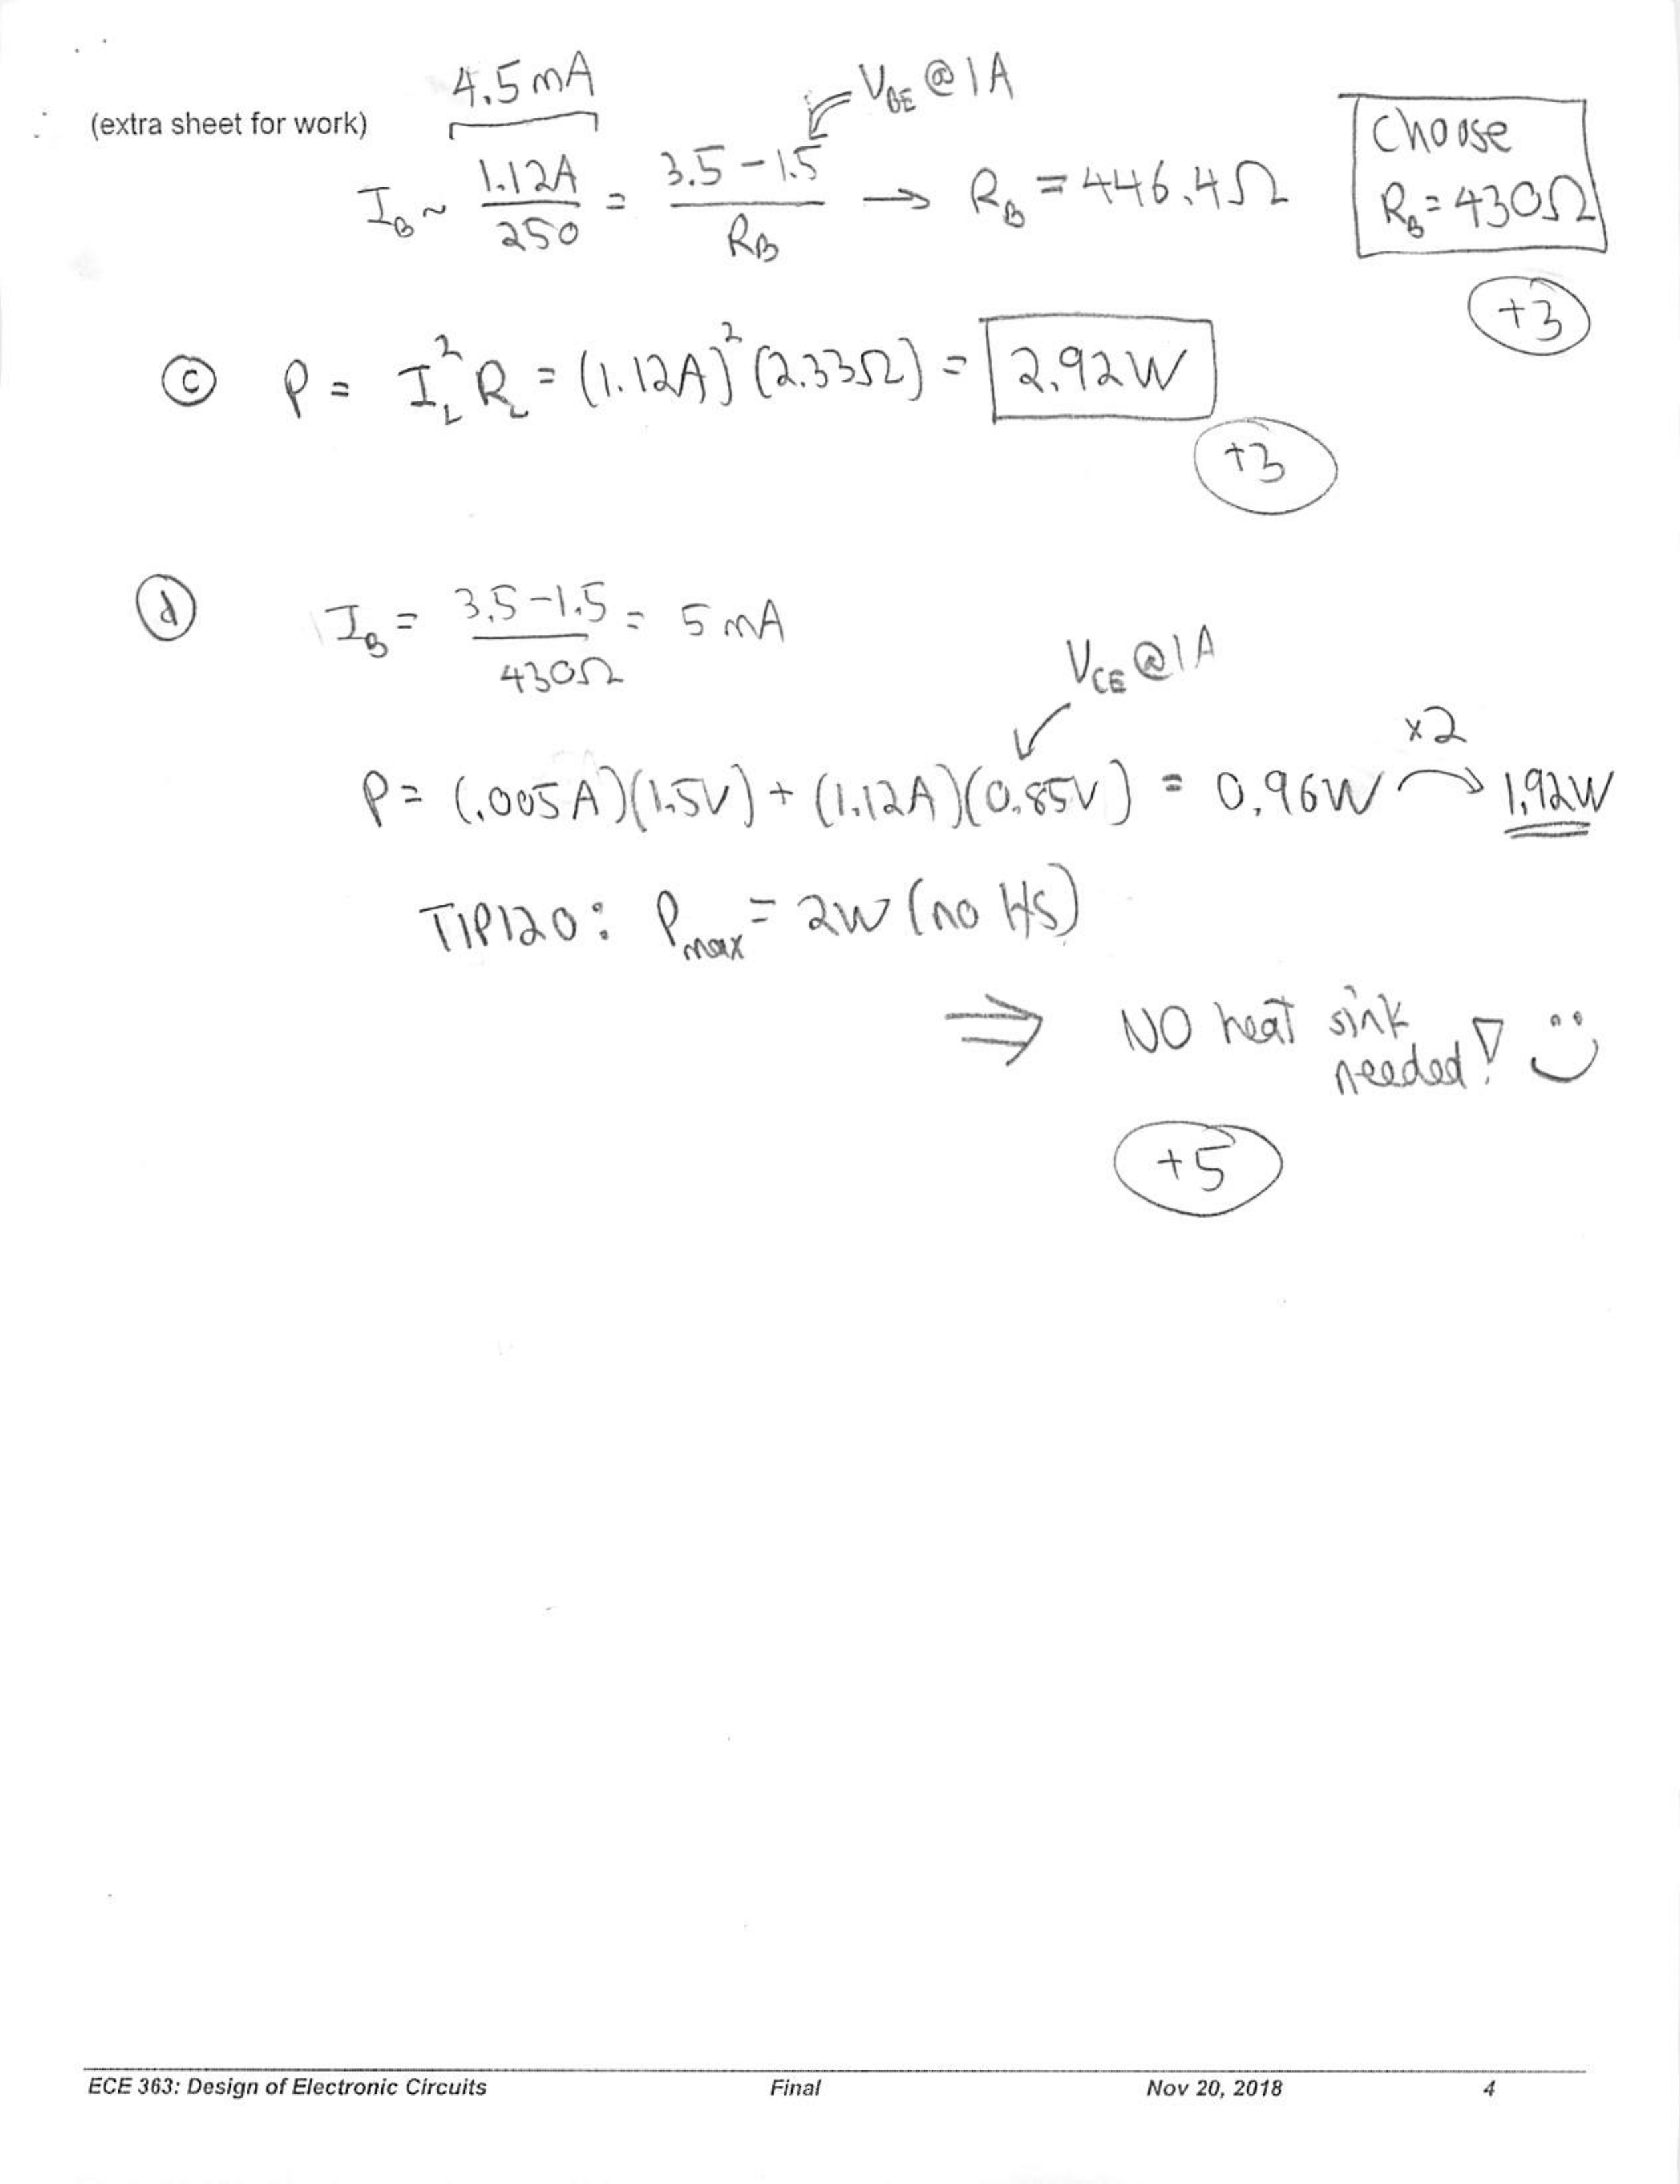 4.5mA
V_BE @ 1A
(extra sheet for work)
I_B ~ 1.12A / 250 = 3.5 - 1.5 / R_B → R_B = 446.4Ω
Choose
R_B = 430Ω
+3
(c) P = I_L^2 R_L = (1.12A)^2 (2.33Ω) = 2.92W
+3
(d) I_B = 3.5 - 1.5 / 430Ω = 5 mA
V_CE @ 1A
x2
P = (.005A)(1.5V) + (1.12A)(0.85V) = 0.96W → 1.92W
TIP120: P_max = 2W (no HS)
⇒ NO heat sink
needed!
+5
ECE 363: Design of Electronic Circuits Final Nov 20, 2018 4